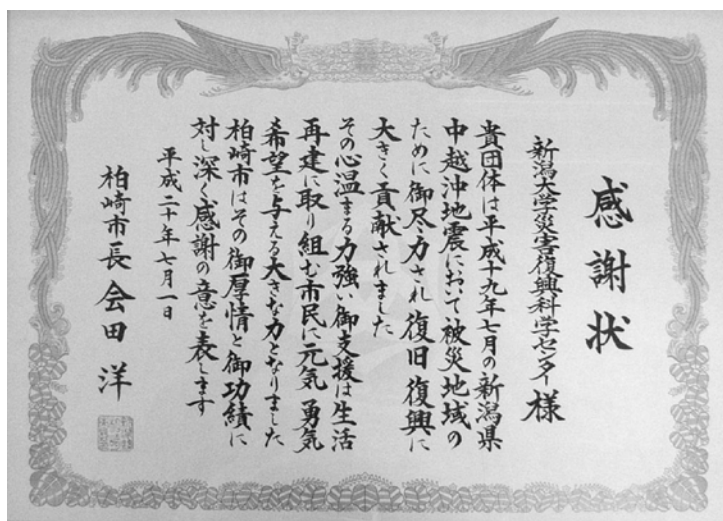 感謝状
新潟大学災害復興科学センター様
貴団体は平成十九年七月の新潟県
中越沖地震において被災地域の
ために御尽力され復旧復興に
大きく貢献されました
その心温まる力強い御支援は生活
再建に取り組む市民に元気勇気
希望を与える大きな力となりました
柏崎市はその御厚情と御功績に
対し深く感謝の意を表します
平成二十年七月一日
柏崎市長会田洋